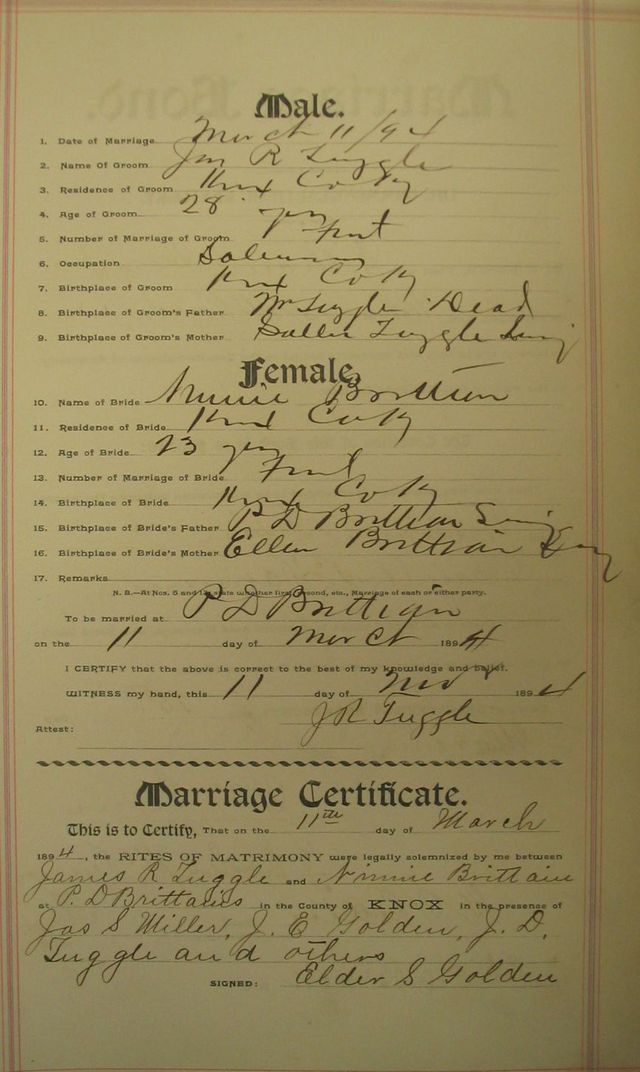 Male.
1. Date of Marriage March 11/94
2. Name Of Groom Jas R Tuggle
3. Residence of Groom Knox Co Ky
4. Age of Groom 28 yrs
5. Number of Marriage of Groom First
6. Occupation
7. Birthplace of Groom Knox Co Ky
8. Birthplace of Groom's Father Wm Tuggle Dead
9. Birthplace of Groom's Mother Sallie Tuggle Living
Female.
10. Name of Bride Brittian
11. Residence of Bride Knox Co Ky
12. Age of Bride 23 yrs
13. Number of Marriage of Bride First
14. Birthplace of Bride Knox Co Ky
15. Birthplace of Bride's Father P D Brittian Living
16. Birthplace of Bride's Mother Ellen Brittian
17. Remarks
N. B.—At Nos. 5 and 13, state whether first, second, etc., Marriage of each or either party.
To be married at P D Brittian
on the 11 day of March 1894
I CERTIFY that the above is correct to the best of my knowledge and belief.
WITNESS my hand, this 11 day of 1894
J R Tuggle
Attest:
Marriage Certificate.
This is to Certify, That on the 11th day of March
1894, the RITES OF MATRIMONY were legally solemnized by me between
James R Tuggle and Brittain
at P. D Brittains in the County of KNOX in the presence of
Jas S Miller, J. E Golden, J. D.
Tuggle and others
SIGNED: Elder S Golden